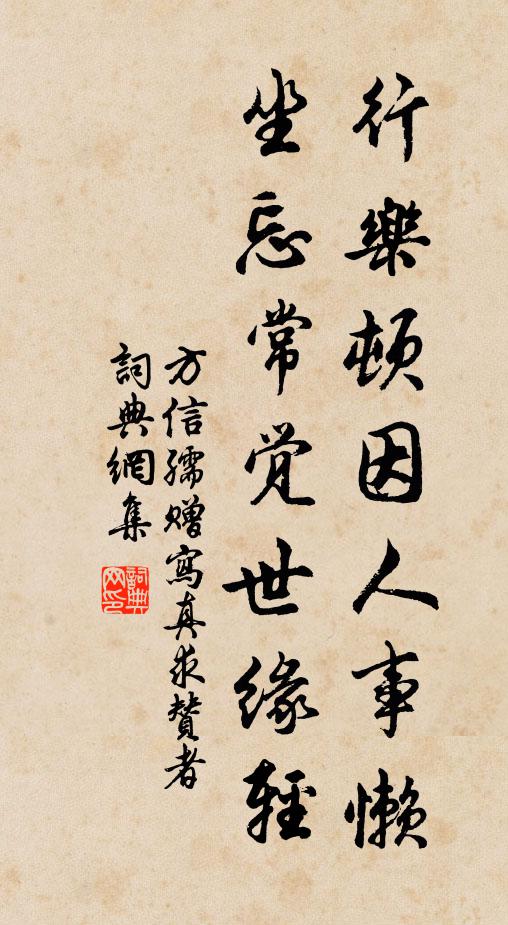 行樂頓因人事懶
坐忘常觉世緣輕
方信孺贈寫真求贊者
詞典網集
詞典
网印